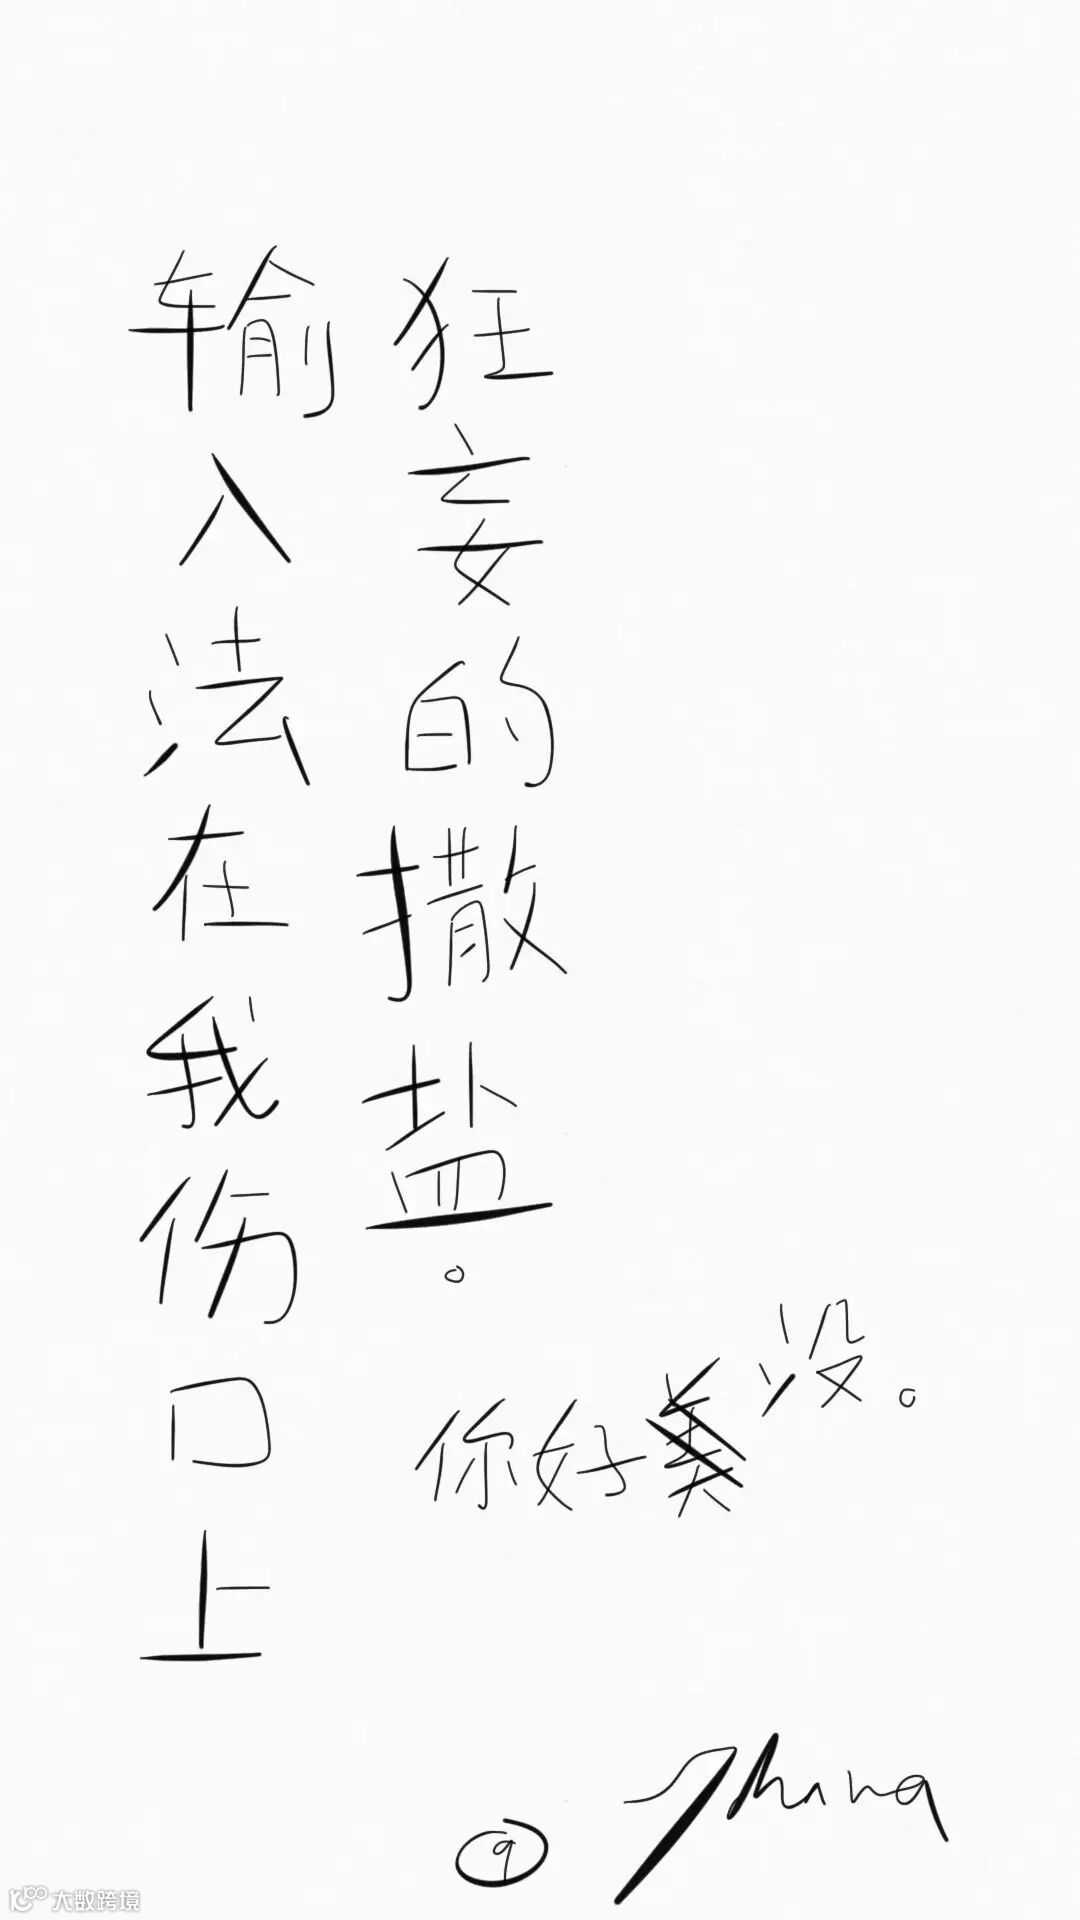 输入法在我伤口上
狂妄的撒盐。
你好美没。
9
大数跨境